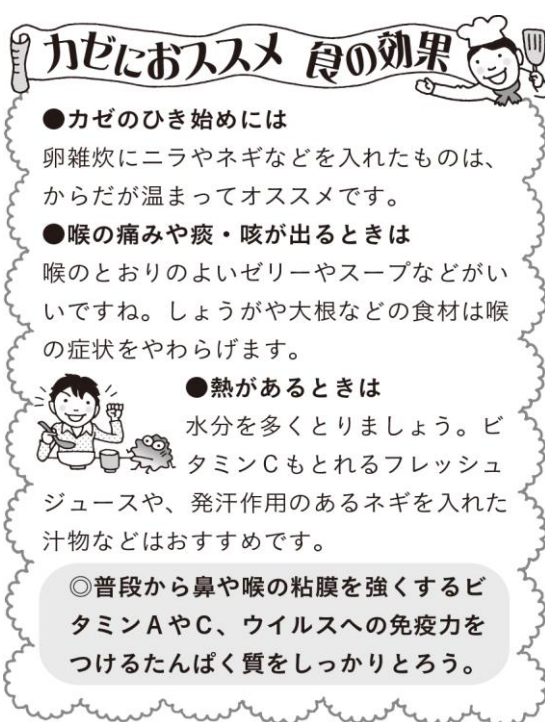 カゼにおススメ 食の効果
●カゼのひき始めには
卵雑炊にニラやネギなどを入れたものは、
からだが温まってオススメです。
●喉の痛みや痰・咳が出るときは
喉のとおりのよいゼリーやスープなどがい
いですね。しょうがや大根などの食材は喉
の症状をやわらげます。
●熱があるときは
水分を多くとりましょう。ビ
タミンCもとれるフレッシュ
ジュースや、発汗作用のあるネギを入れた
汁物などはおすすめです。
◎普段から鼻や喉の粘膜を強くするビ
タミンAやC、ウイルスへの免疫力を
つけるたんぱく質をしっかりとろう。